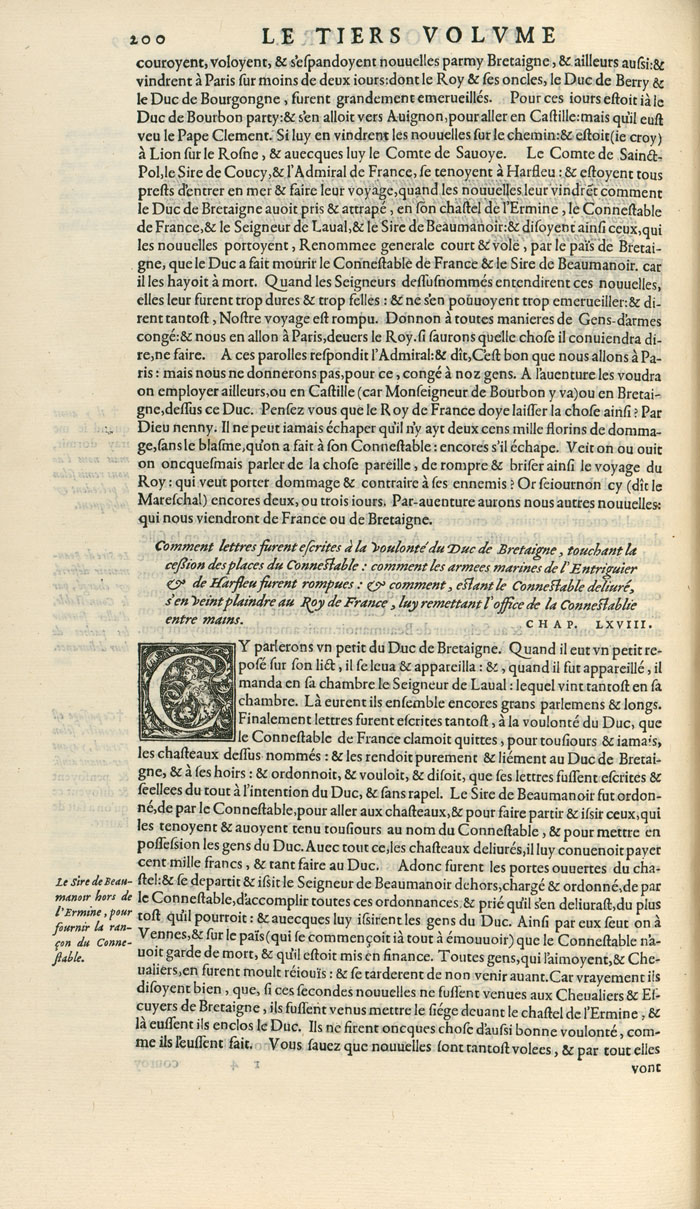 200 LE TIERS VOLVME
couroyent, voloyent, & s'eſpandoyent nouuelles parmy Bretaigne, & ailleurs auſsi: &
vindrent à Paris ſur moins de deux iours: dont le Roy & ſes oncles, le Duc de Berry &
le Duc de Bourgongne, furent grandement emerueillés. Pour ces iours eſtoit ià le
Duc de Bourbon party: & s'en alloit vers Auignon, pour aller en Caſtille: mais qu'il euſt
veu le Pape Clement. Si luy en vindrent les nouuelles ſur le chemin: & eſtoit (ie croy)
à Lion ſur le Roſne, & auecques luy le Comte de Sauoye. Le Comte de Sainct-
Pol, le Sire de Coucy, & l'Admiral de France, ſe tenoyent à Harfleu: & eſtoyent tous
preſts d'entrer en mer & faire leur voyage, quand les nouuelles leur vindrēt comment
le Duc de Bretaigne auoit pris & attrapé, en ſon chaſtel de l'Ermine, le Conneſtable
de France, & le Seigneur de Laual, & le Sire de Beaumanoir: & diſoyent ainſi ceux, qui
les nouuelles portoyent, Renommee generale court & vole, par le païs de Bretai-
gne, que le Duc a fait mourir le Conneſtable de France & le Sire de Beaumanoir. car
il les hayoit à mort. Quand les Seigneurs deſſuſnommés entendirent ces nouuelles,
elles leur furent trop dures & trop felles: & ne s'en pouuoyent trop emerueiller: & di-
rent tantoſt, Noſtre voyage eſt rompu. Donnon à toutes manieres de Gens-d'armes
congé: & nous en allon à Paris, deuers le Roy. ſi ſaurons quelle choſe il conuiendra di-
re, ne faire. A ces parolles reſpondit l'Admiral: & dît, C'eſt bon que nous allons à Pa-
ris: mais nous ne donnerons pas, pour ce, congé à noz gens. A l'auenture les voudra
on employer ailleurs, ou en Caſtille (car Monſeigneur de Bourbon y va) ou en Bretai-
gne, deſſus ce Duc. Penſez vous que le Roy de France doye laiſſer la choſe ainſi? Par
Dieu nenny. Il ne peut iamais échaper qu'il n'y ayt deux cens mille florins de domma-
ge, ſans le blaſme, qu'on a fait à ſon Conneſtable: encores s'il échape. Veit on ou ouït
on oncqueſmais parler de la choſe pareille, de rompre & briſer ainſi le voyage du
Roy: qui veut porter dommage & contraire à ſes ennemis? Or ſeiournon cy (dît le
Mareſchal) encores deux, ou trois iours. Par-auenture aurons nous autres nouuelles:
qui nous viendront de France ou de Bretaigne.
Comment lettres furent eſcrites à la voulonté du Duc de Bretaigne, touchant la
ceſsion des places du Conneſtable: comment les armees marines de l'Entriguier
& de Harfleu furent rompues: & comment, eſtant le Conneſtable deliuré,
s'en veint plaindre au Roy de France, luy remettant l'office de la Conneſtablie
entre mains.
CHAP. LXVIII.
CY parlerons vn petit du Duc de Bretaigne. Quand il eut vn petit re-
poſé ſur ſon lict, il ſe leua & appareilla: &, quand il fut appareillé, il
manda en ſa chambre le Seigneur de Laual: lequel vint tantoſt en ſa
chambre. Là eurent ils enſemble encores grans parlemens & longs.
Finalement lettres furent eſcrites tantoſt, à la voulonté du Duc, que
le Conneſtable de France clamoit quittes, pour touſiours & iamais,
les chaſteaux deſſus nommés: & les rendoit purement & liément au Duc de Bretai-
gne, & à ſes hoirs: & ordonnoit, & vouloit, & diſoit, que ſes lettres fuſſent eſcrites &
ſeellees du tout à l'intention du Duc, & ſans rapel. Le Sire de Beaumanoir fut ordon-
né, de par le Conneſtable, pour aller aux chaſteaux, & pour faire partir & iſsir ceux, qui
les tenoyent & auoyent tenu touſiours au nom du Conneſtable, & pour mettre en
poſſeſsion les gens du Duc. Auec tout ce, les chaſteaux deliurés, il luy conuenoit payer
cent mille francs, & tant faire au Duc. Adonc furent les portes ouuertes du cha-
ſtel: & ſe departit & iſsit le Seigneur de Beaumanoir dehors, chargé & ordonné, de par
le Conneſtable, d'accomplir toutes ces ordonnances. & prié qu'il s'en deliuraſt, du plus
toſt qu'il pourroit: & auecques luy iſsirent les gens du Duc. Ainſi par eux ſeut on à
Vennes, & ſur le païs (qui ſe commençoit ià tout à émouuoir) que le Conneſtable n'a-
uoit garde de mort, & qu'il eſtoit mis en finance. Toutes gens, qui l'aimoyent, & Che-
ualiers, en furent moult réiouïs: & ſe tarderent de non venir auant. Car vrayement ils
diſoyent bien, que, ſi ces ſecondes nouuelles ne fuſſent venues aux Cheualiers & Eſ-
cuyers de Bretaigne, ils fuſſent venus mettre le ſiége deuant le chaſtel de l'Ermine, &
là euſſent ils enclos le Duc. Ils ne firent oncques choſe d'auſsi bonne voulonté, com-
me ils l'euſſent fait. Vous ſauez que nouuelles ſont tantoſt volees, & par tout elles
vont
Le Sire de Beau-
manoir hors de
l'Ermine, pour
fournir la ran-
çon du Conne-
ſtable.